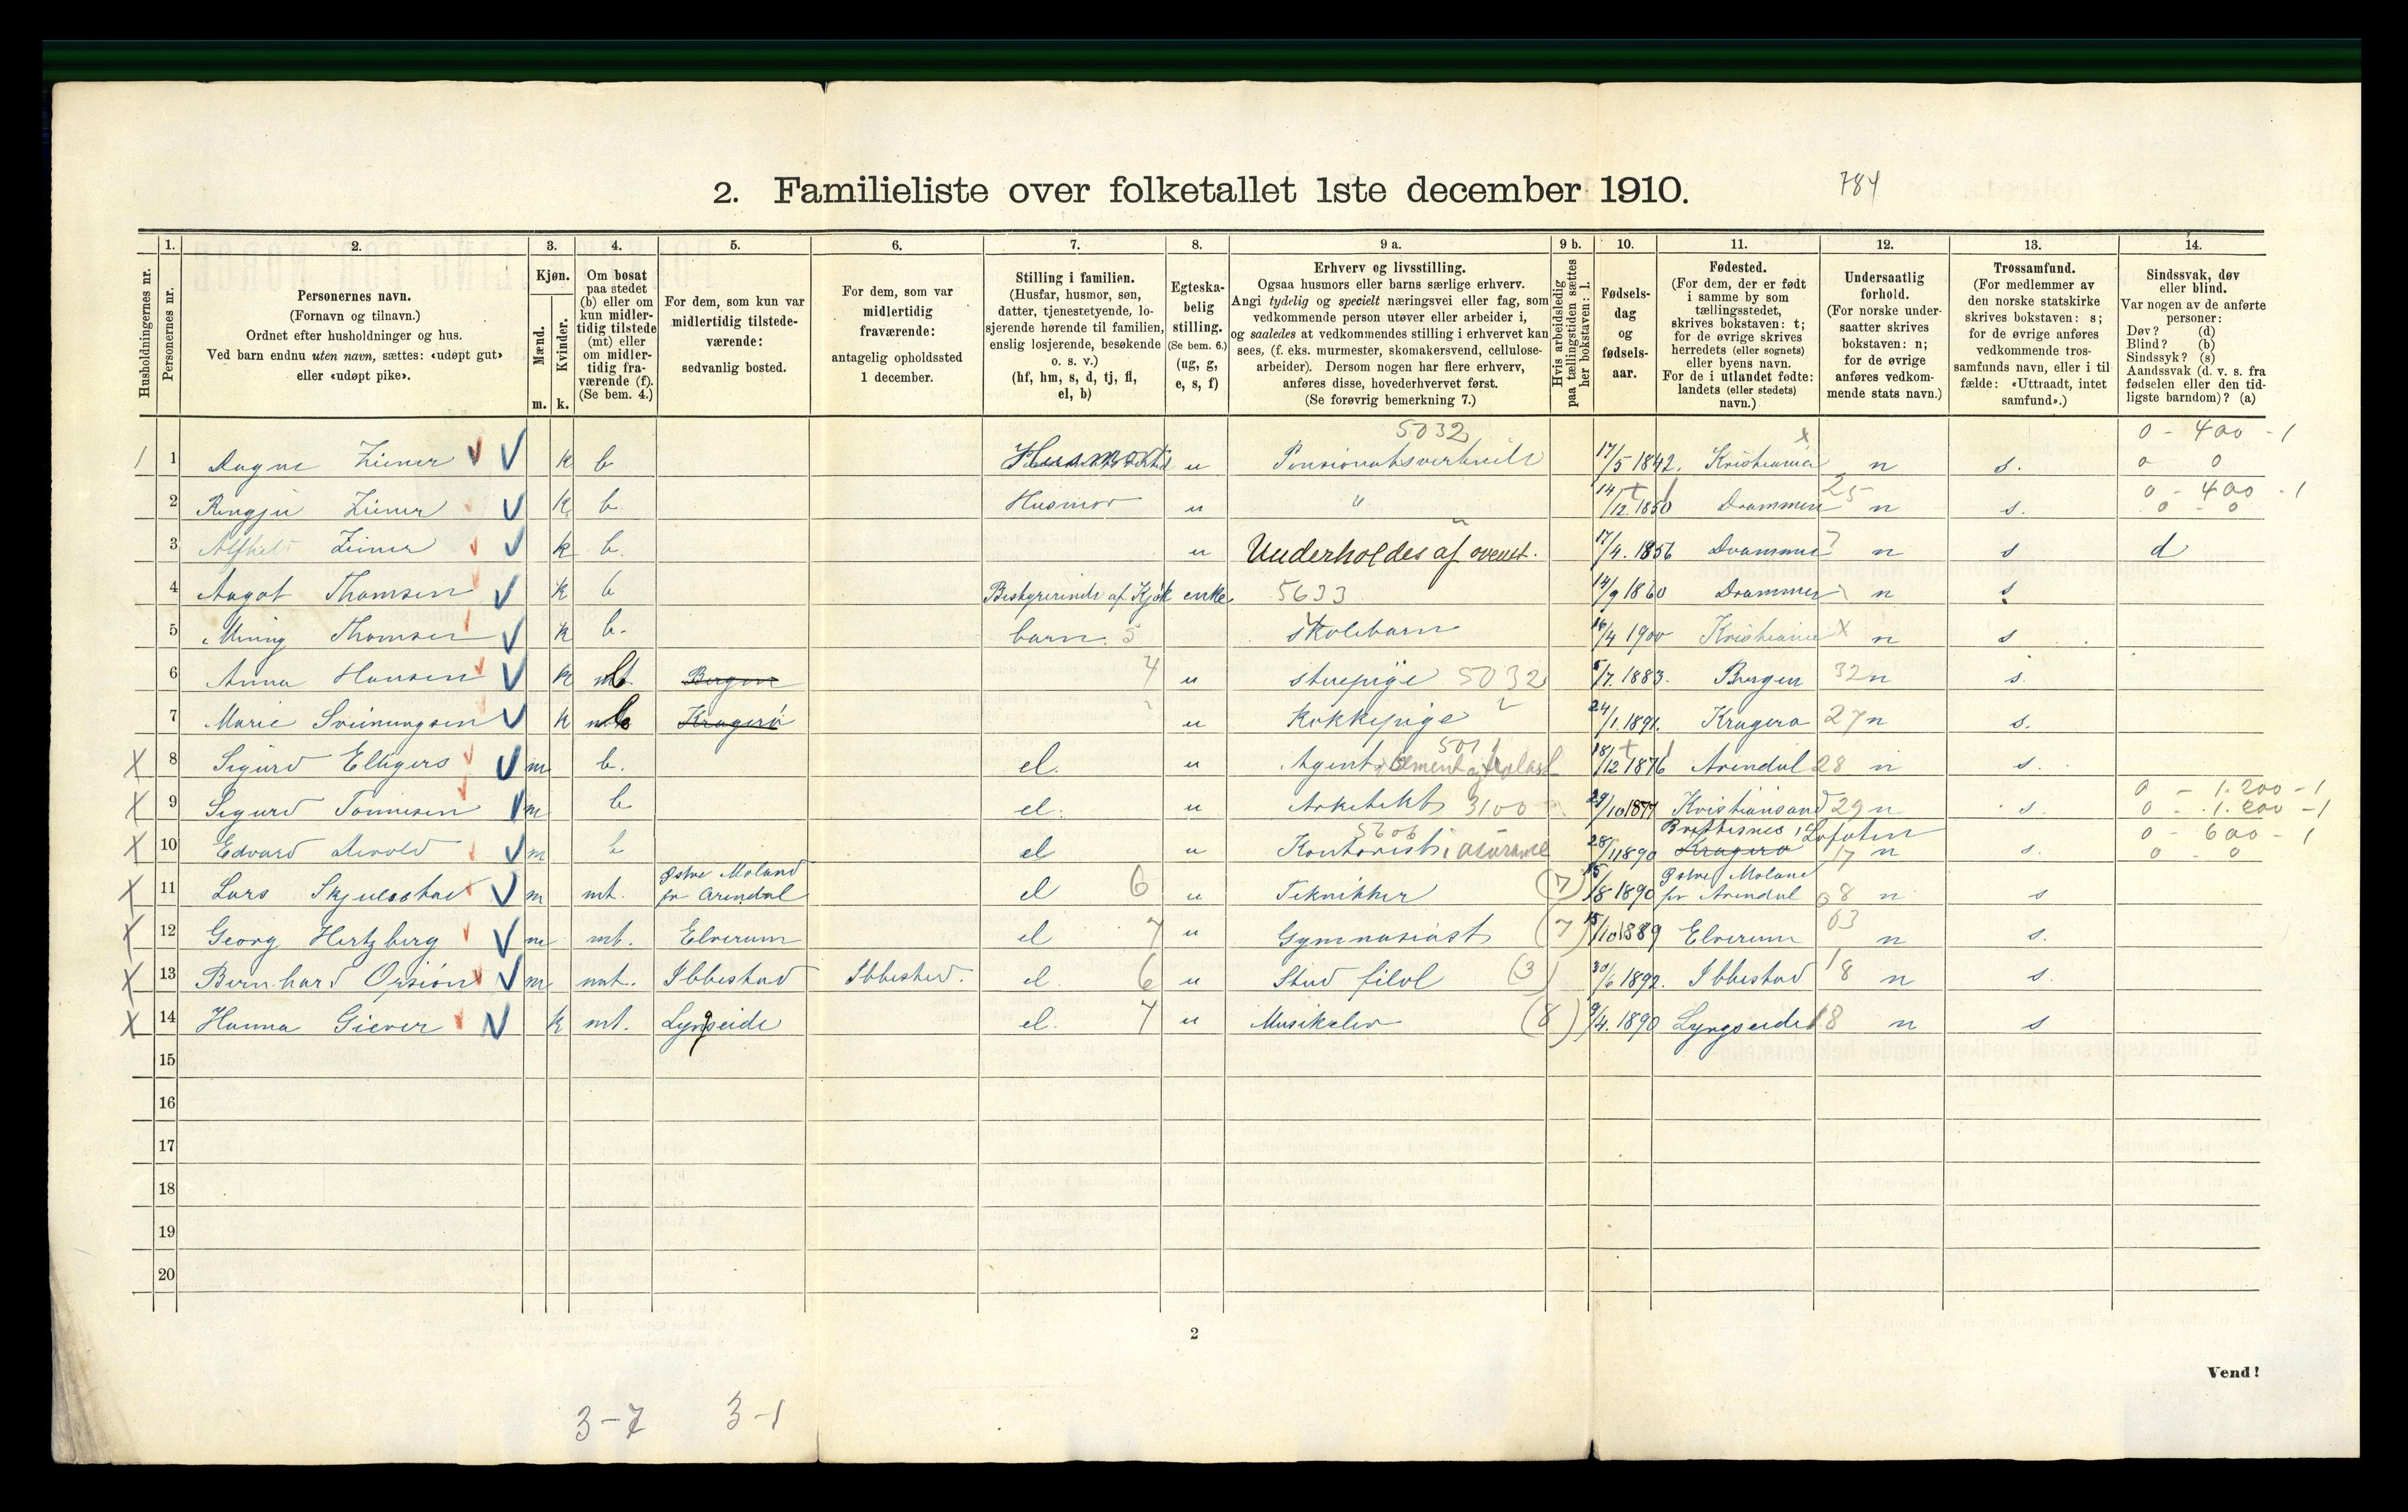 2. Familieliste over folketallet 1ste december 1910.
784
1. 2. 3. 4. 5. 6. 7. 8. 9 a. 9 b. 10. 11. 12. 13. 14.
Husholdningernes nr.
Personernes nr.
Personernes navn.
(Fornavn og tilnavn.)
Ordnet efter husholdninger og hus.
Ved barn endnu uten navn, sættes: «udøpt gut»
eller «udøpt pike».
Kjøn.
Mænd.
Kvinder.
m. k.
Om bosat
paa stedet
(b) eller om
kun midler-
tidig tilstede
(mt) eller
om midler-
tidig fra-
værende (f).
(Se bem. 4.)
For dem, som kun var
midlertidig tilstede-
værende:
sedvanlig bosted.
For dem, som var
midlertidig
fraværende:
antagelig opholdssted
1 december.
Stilling i familien.
(Husfar, husmor, søn,
datter, tjenestetyende, lo-
sjerende hørende til familien,
enslig losjerende, besøkende
o. s. v.)
(hf, hm, s, d, tj, fl,
el, b)
Egteska-
belig
stilling.
(Se bem. 6.)
(ug, g,
e, s, f)
Erhverv og livsstilling.
Ogsaa husmors eller barns særlige erhverv.
Angi tydelig og specielt næringsvei eller fag, som
vedkommende person utøver eller arbeider i,
og saaledes at vedkommendes stilling i erhvervet kan
sees, (f. eks. murmester, skomakersvend, cellulose-
arbeider). Dersom nogen har flere erhverv,
anføres disse, hovederhvervet først.
(Se forøvrig bemerkning 7.)
Hvis arbeidsledig
paa tællingstiden sættes
her bokstaven: l.
Fødsels-
dag
og
fødsels-
aar.
Fødested.
(For dem, der er født
i samme by som
tællingsstedet,
skrives bokstaven: t;
for de øvrige skrives
herredets (eller sognets)
eller byens navn.
For de i utlandet fødte:
landets (eller stedets)
navn.)
Undersaatlig
forhold.
(For norske under-
saatter skrives
bokstaven: n;
for de øvrige
anføres vedkom-
mende stats navn.)
Trossamfund.
(For medlemmer av
den norske statskirke
skrives bokstaven: s;
for de øvrige anføres
vedkommende tros-
samfunds navn, eller i til-
fælde: «Uttraadt, intet
samfund».)
Sindssvak, døv
eller blind.
Var nogen av de anførte
personer:
Døv? (d)
Blind? (b)
Sindssyk? (s)
Aandssvak (d. v. s. fra
fødselen eller den tid-
ligste barndom)? (a)
5032 x 0 - 400 - 1
1 1 Dagne Ziener k b Husmor u 17/5 1842. Kristiania n s. 0 0
25 0 - 400 - 1
2 Ziener k b Husmor u " 14/12 1850 Drammen n s. 0 - 0
3 Ziener k b. u Underholdes af ovenst. 17/4. 1856 Drammen n s d
4 Aagot Thomsen k b Bestyrerinde af Kjøk enke 5633 14/9 1860 Drammen n s
5 Thomsen k b. barn. 5 skolebarn 16/4 1900 Kristiania x n s
6 Anna Hansen k b Bergen 4 u stuepige 5032 5/7. 1883. Bergen 32 n s.
7 Marie Sveinungsen k b Kragerø u Kokkepige 24/1. 1891. Kragerø 27 n s.
501
x 8 Sigurd m b. el. u Agent, Cement og 18/12 1876 Arendal 28 n s.
0 - 1.200 - 1
x 9 Sigurd m b el. u Arkitekt 3100 29/10 1877 Kristiansand 29 n s. 0 - 1.200 - 1
Lofoten 0 - 600 - 1
x 10 Edvard m b el u Kontorist i 28/1 1890 Kragerø 17 n s. 0 - 0
Østre Moland Østre Moland
x 11 Lars m mt. pr Arendal el 6 u Tekniker (7) 15/8 1890 pr Arendal 28 n s
x 12 Georg Hertzberg m mt. Elverum el 7 u Gymnasiast (7) 15/10 1889 Elverum 03 n s.
x 13 Bernhard m mt. Ibbestad Ibbestad. el 6 u Stud filol (3) 30/6 1892. Ibbestad 18 n s.
x 14 Hanna Giever k mt. Lyngseide el. 7 u Musikelev (8) 9/4. 1890 Lyngseidet 18 n s
15
16
17
18
19
20
2
Vend!
3-7 3-1